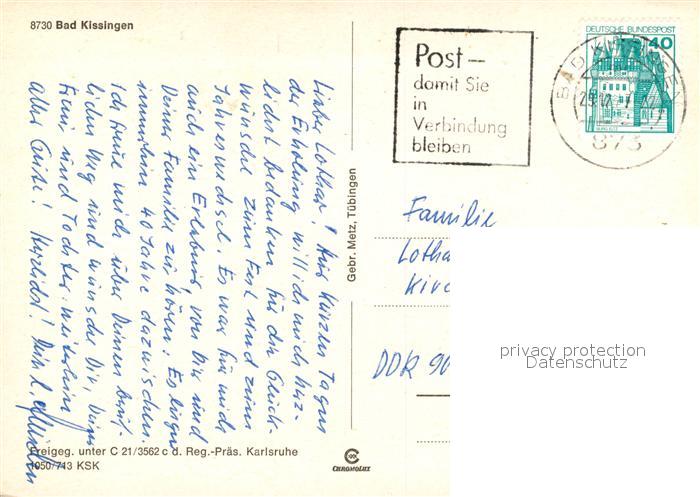 8730 Bad Kissingen
Lieber Lothar! Aus kurzen Tagen
der Erholung will ich mich herz-
lichst bedanken für die Glück-
wünsche zum Fest und zum
Jahreswechsel. Es war für mich
auch ein Erlebnis, von Dir und
Deiner Familie zu hören. Es liegen
immerhin 40 Jahre dazwischen.
Ich freue mich über Deinen beruf-
lichen Weg und wünsche Dir, Deiner
Frau und Tochter weiterhin
alles Gute! Herzlichst! Dein
Freigeg. unter C 21/3562 c d. Reg.-Präs. Karlsruhe
1050/713 KSK
Gebr. Metz, Tübingen
CHROMOLUX
Post –
damit Sie
in
Verbindung
bleiben
DEUTSCHE BUNDESPOST
40
BURG ELTZ
BAD KISSINGEN
873
Familie
Lotha
Kirc
DDR 90
privacy protection
Datenschutz